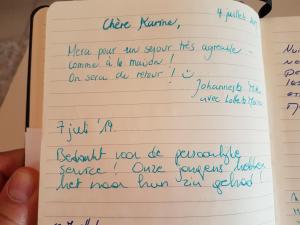 4 juillet
Chère Karine,
Merci pour un séjour très agréable -
comme à la maison !
On sera de retour ! ☺
Johannes
avec
7 juli '19.
Bedankt voor de persoonlijke
service ! Onze jongens hebben
het naar hun zin gehad !